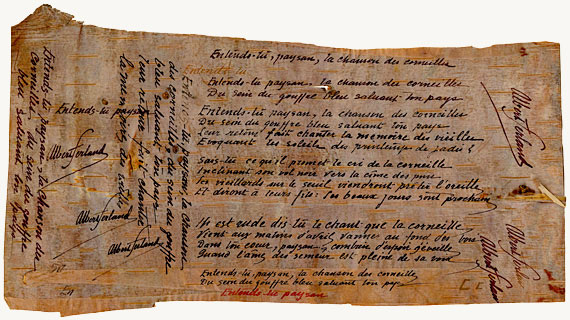 Entends-tu, paysan, la chanson des corneilles
Entends-tu
Entends-tu, paysan, la chanson des corneilles
Du sein du gouffre bleu saluant ton pays
Entends-tu, paysan, la chanson des corneilles
Du sein du gouffre bleu saluant ton pays
Leur retour fait chanter la mémoire des vieilles
Evoquant tes soleils des printemps de jadis!
Sais-tu ce qu'il promet le cri de la corneille
Inclinant son vol noir vers la cime des pins
Les vieillards sur le seuil viendront prêter l'oreille
Et diront à leurs fils: Les beaux jours sont prochains
Il est rude dis tu le chant que la corneille
Vient aux matins d'avril au fond des bois
Dans ton cœur, paysan, combien d'espoir s'éveille
Quand l'âme des semeurs est pleine de sa voix
Entends-tu, paysan, la chanson des corneilles,
Du sein du gouffre bleu saluant ton pays
Entends-tu paysan
Entends-tu, paysan, la chanson des
corneilles, Du sein du gouffre
bleu saluant ton
pays
Entends-tu, paysan
Albert Ferland
Albert Ferland
Albert Ferland
Entends-tu, paysan, la chanson
des corneilles du sein du gouffre
bleu saluant ton pays
Leur retour fait chanter
la mémoire des vieilles
Albert Ferland
Albert Ferland
Albert Ferland